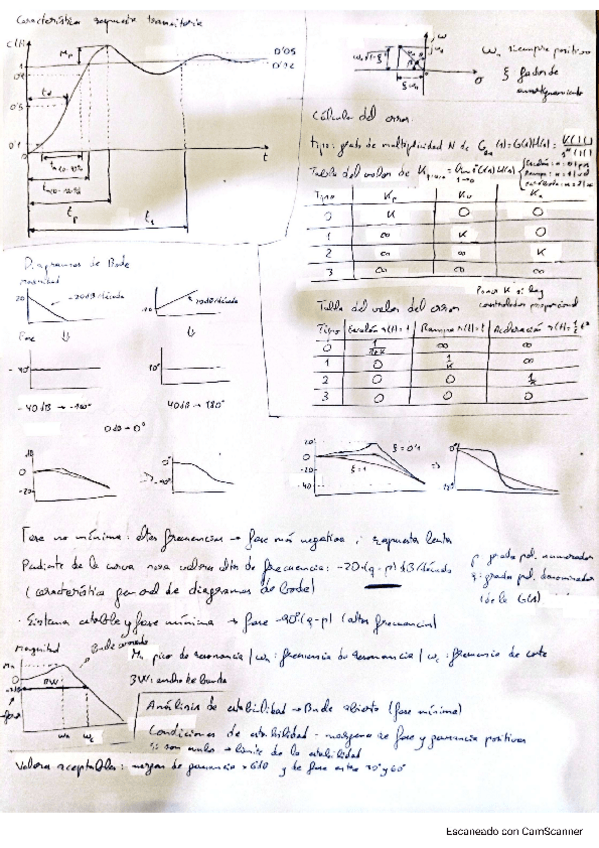 Característica respuesta transitoria
c(t)
Mp
0'05
0'02
0'9
0'5
0'1
td
tr(0-100%)
tp
ts
t
jω
σ
ωn siempre positivo
ξ factor de amortiguamiento
Cálculo del error.
Tipo: grado de multiplicidad N de
Tabla del valor de K
Tipo Kp Kv Ka
0 K 0 0
1 ∞ K 0
2 ∞ ∞ K
3 ∞ ∞ ∞
Poner K si hay
controlador proporcional
Tabla del valor del error
Tipo Escalón r(t)=1 Rampa r(t)=t Aceleración r(t)=½t²
0 1/(1+K) ∞ ∞
1 0 1/K ∞
2 0 0 1/K
3 0 0 0
Diagramas de Bode
magnitud
20
-20dB/década
20dB/década
Fase
-90°
90°
-40dB → -180°
40dB → 180°
0dB → 0°
0
-20
0°
-90°
20
0
-20
-40
ξ=0'1
ξ=1
0°
Fase no mínima: altas frecuencias → fase más negativa, respuesta lenta
Pendiente de la curva para valores altos de frecuencia: -20·(q-p) dB/década
p grado pol. numerador
q: grado pol. denominador
(de la G(s))
(característica general de diagramas de bode)
· Sistema estable y fase mínima → fase -90°(q-p) (altas frecuencias)
Magnitud
Bode cerrado
Mr pico de resonancia / ωr: frecuencia de resonancia / ωc: frecuencia de corte
BW: ancho de banda
Mr
0
BW
ωr
ωc
Análisis de estabilidad → Bode abierto (fase mínima)
Condiciones de estabilidad - margenes de fase y ganancia positivos
si son nulos → límite de la estabilidad
Valores aceptables: margen de ganancia > 6dB y de fase entre 30° y 60°
Escaneado con CamScanner